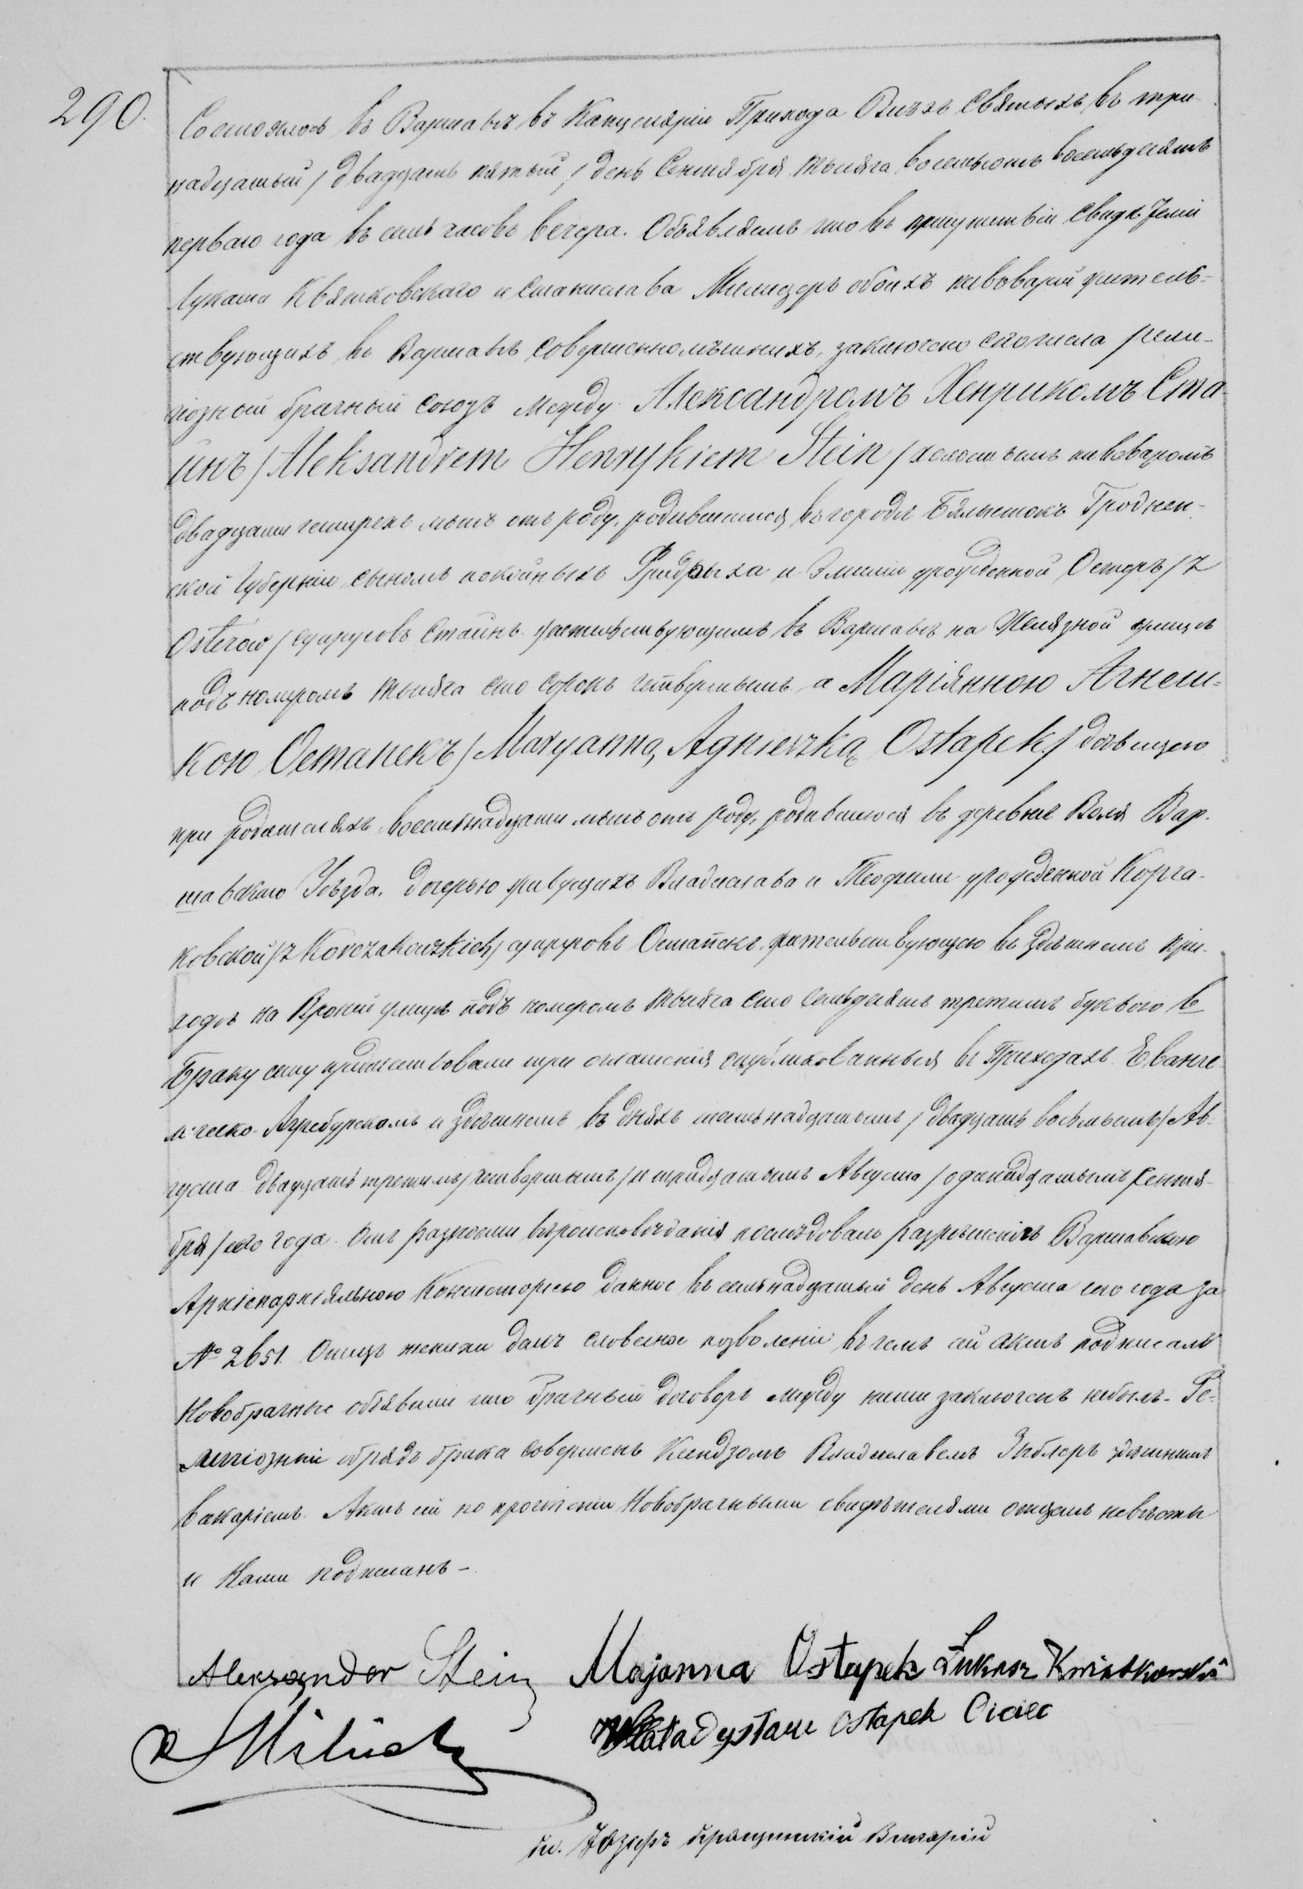 290.
Состоялось въ Варшавѣ въ Канцеляріи Прихода Всѣхъ Святыхъ въ три-
надцатый / двадцать пятый / день Сентября тысяча восемьсотъ восемьдесятъ
перваго года въ семь часовъ вечера. Объявляемъ что въ присутствіи свидѣтелей
Лукаша Квятковскаго и Станислава обоихъ пивоварей житель-
ствующихъ въ Варшавѣ совершеннолѣтнихъ, заключено сего числа рели-
гіозный брачный союзъ между Александромъ Хенрикомъ Ста-
йнъ / Aleksandrem Henrykiem Stein / холостымъ пивоваромъ
двадцати четырехъ лѣтъ отъ роду, родившимся въ городѣ Бялыстокъ Гроднен-
ской Губерніи сыномъ покойныхъ Фридрыха и Эмиліи урожденной Остеръ / z
Osterów / супруговъ Стайнъ жительствующимъ въ Варшавѣ на Желязной улицѣ
подъ номеромъ тысяча сто сорокъ четвертымъ, а Маріянною Агнеш-
кою Остапекъ / Maryanną Agnieszką Ostapek / дѣвицею
при родителяхъ восемнадцати лѣтъ отъ роду, родившеюся въ деревнѣ Воля Вар-
шавскаго Уѣзда, дочерью живущихъ Владислава и Теофили урожденной Корча-
ковской / z Korczakowskich / супруговъ Остапекъ, жительствующею въ здѣшнемъ при-
ходѣ на улицѣ подъ номеромъ тысяча сто семьдесятъ третимъ буквою
Браку сему предшествовали три оглашенія опубликованныя въ Приходахъ Еванге-
лическо-Аугсбургскомъ и здѣшнемъ въ дняхъ шестьнадцатымъ / двадцать восьмымъ / Ав-
густа двадцать третимъ / четвертымъ / и тридцатымъ Августа / одинадцатымъ Сентя-
бря / сего года. Отъ разности вѣроисповѣданія послѣдовало разрѣшеніе Варшавскою
Архіепархіяльною Консисторіею данное въ семьнадцатый день Августа сего года за
№ 2651. Отецъ далъ словесное позволеніе въ чемъ сей актъ подписалъ
Новобрачные объявили что брачный договоръ между ними заключенъ небылъ. Ре-
лигіозный обрядъ брака совершенъ Ксендзомъ Владиславомъ здѣшнимъ
викаріемъ. Актъ сей по прочтеніи Новобрачными свидѣтелями отцемъ невѣсты
и Нами подписанъ.
Alexzander Stein Majanna Ostapek Łukasz Kwiatkowski
Władysław Ostapek Ociec
Кс. Іозефъ Викарій